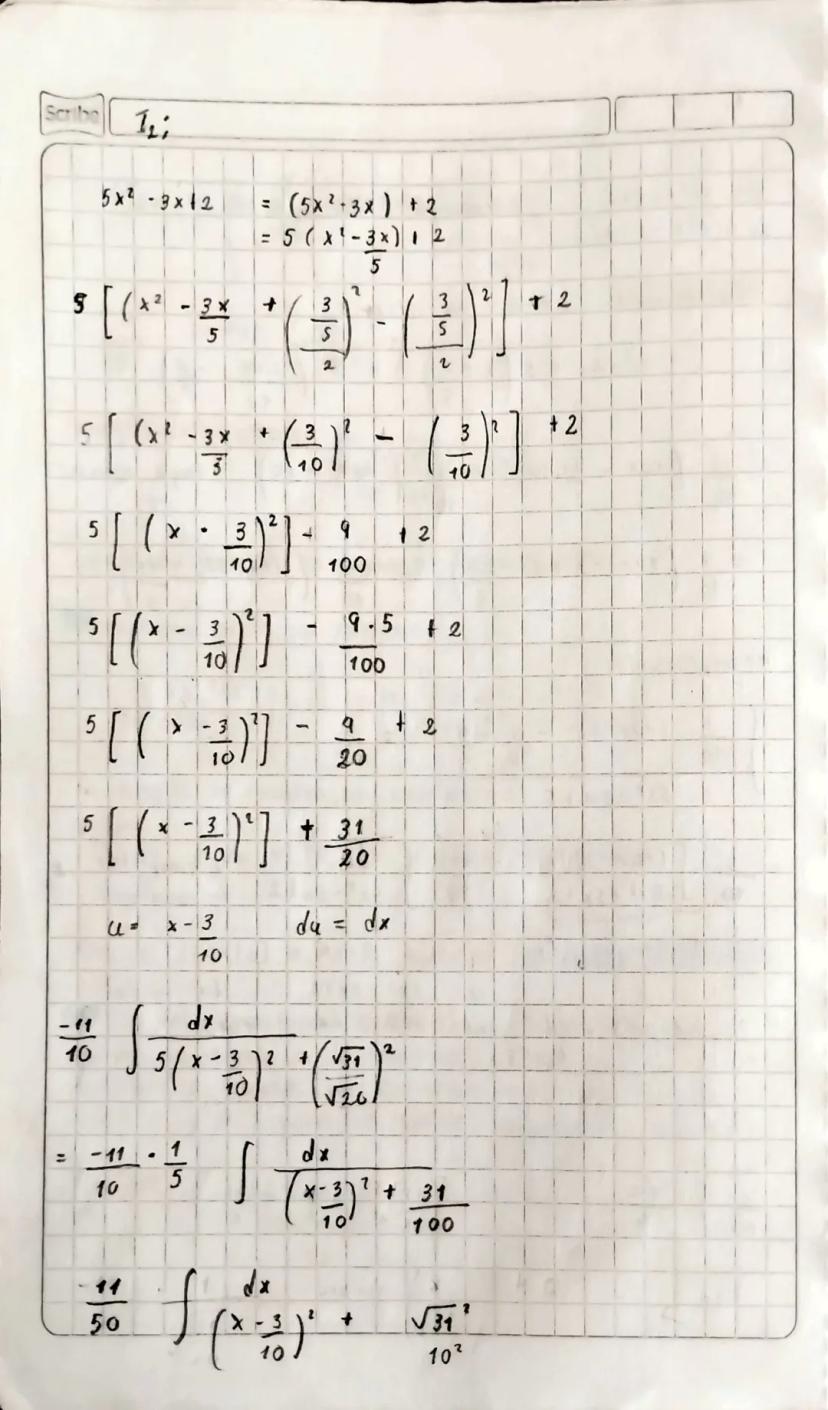 Scribe I₂;
5x² - 3x + 2 = (5x² - 3x) + 2
= 5(x² - 3x/5) + 2
5[(x² - 3x/5 + ((3/5)/2)² - ((3/5)/2)²] + 2
5[(x² - 3x/5 + (3/10)² - (3/10)²] + 2
5[(x - 3/10)²] - 9/100 + 2
5[(x - 3/10)²] - 9·5/100 + 2
5[(x - 3/10)²] - 9/20 + 2
5[(x - 3/10)²] + 31/20
u = x - 3/10 du = dx
-11/10 ∫ dx / 5(x - 3/10)² + (√31/√20)²
= -11/10 · 1/5 ∫ dx / (x - 3/10)² + 31/100
-11/50 ∫ dx / (x - 3/10)² + √31²/10²